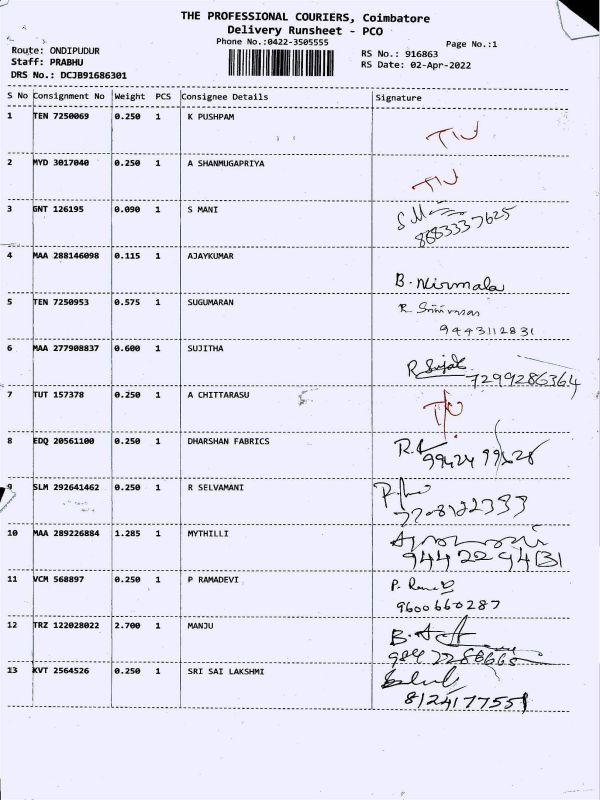 THE PROFESSIONAL COURIERS, Coimbatore
Delivery Runsheet - PCO
Phone No.:0422-3505555
Page No.:1
Route: ONDIPUDUR
Staff: PRABHU
DRS No.: DCJB91686301
RS No.: 916863
RS Date: 02-Apr-2022
S No Consignment No Weight PCS Consignee Details Signature
1 TEN 7250069 0.250 1 K PUSHPAM
2 MYD 3017040 0.250 1 A SHANMUGAPRIYA
3 GNT 126195 0.090 1 S MANI
8883337625
4 MAA 288146098 0.115 1 AJAYKUMAR
B. Nirmala
5 TEN 7250953 0.575 1 SUGUMARAN
R. Srinivasan
9443112831
6 MAA 277908837 0.600 1 SUJITHA
7299286364
7 TUT 157378 0.250 1 A CHITTARASU
8 EDQ 20561100 0.250 1 DHARSHAN FABRICS
9 SLM 292641462 0.250 1 R SELVAMANI
10 MAA 289226884 1.285 1 MYTHILLI
11 VCM 568897 0.250 1 P RAMADEVI
9600660287
12 TRZ 122028022 2.700 1 MANJU
13 KVT 2564526 0.250 1 SRI SAI LAKSHMI
8124177551